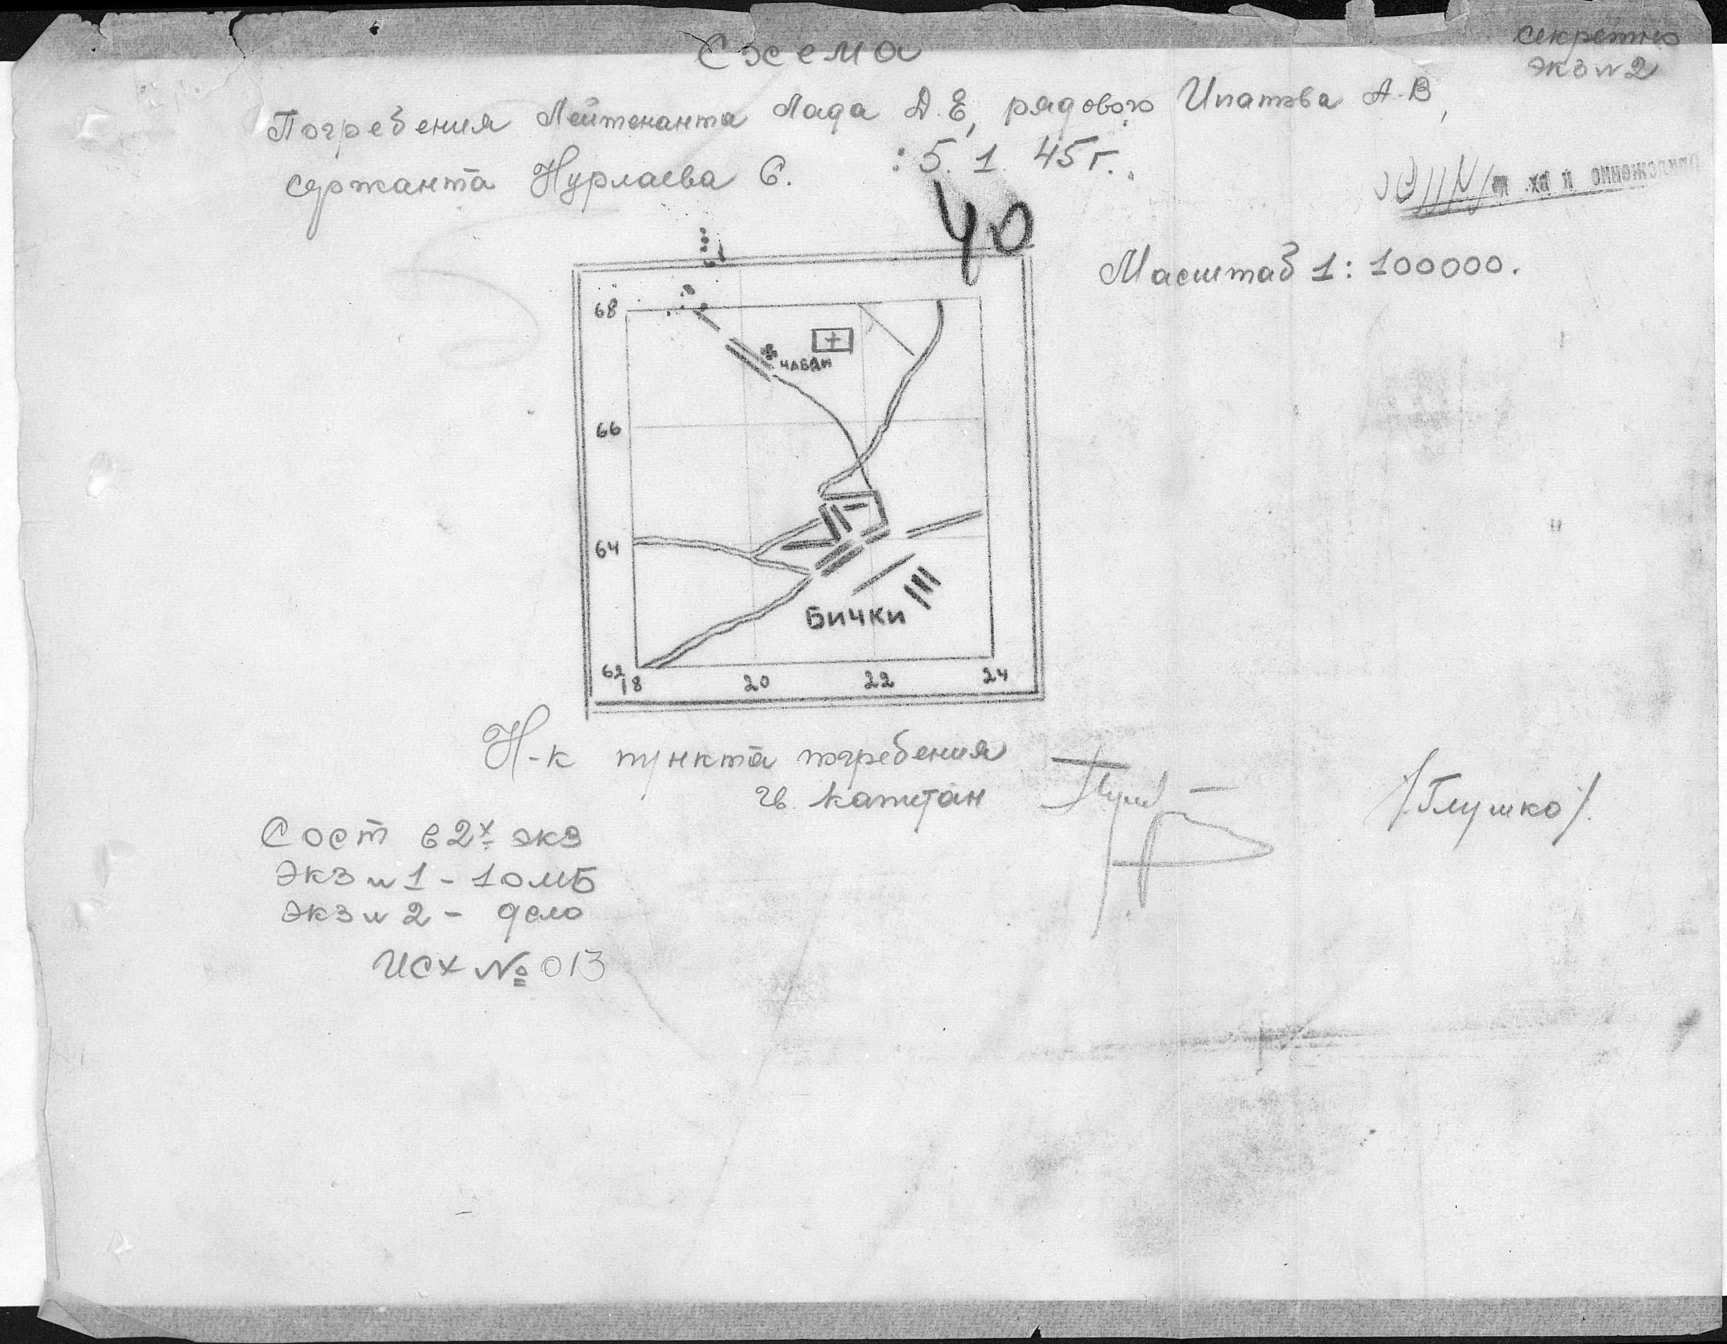 Схема
секретно
экз № 2
Погребения Лейтенанта Лада Д.Е, рядового Ипатова А.В,
сержанта Нурлаева С. : 5. 1 45г.
40
Приложение к вх. №
Масштаб 1: 100000.
68
чабан
66
64
Бички
62
18 20 22 24
Н-к пункта погребения
гв. капитан /Глушко/.
Сост в 2х экз
Экз № 1 - 10 МБ
Экз № 2 - дело
Исх № 013